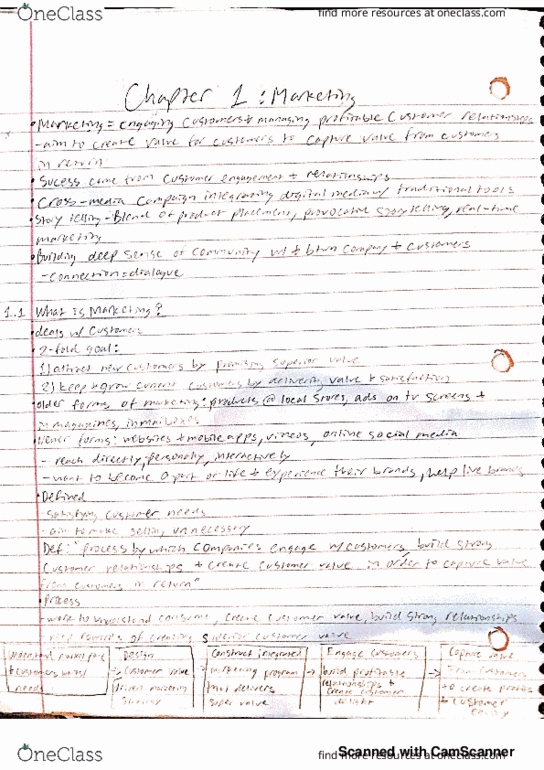 OneClass
find more resources at oneclass.com
Chapter 1 : Marketing
• Marketing = engaging customers + managing profitable customer relationships
- aim to create value for customers to capture value from customers
in return
• Sucess came from customer engagement + relationships
• Cross-media campaign integrating digital media w/ traditional tools
• Story telling - Blend of product placement, provocative storytelling, real-time
marketing
• Building deep sense of community w/ + btwn company + customers
- connection = dialogue
1.1 What is Marketing?
• deals w/ customers
• 2-fold goal:
1) attract new customers by promising superior value
2) keep + grow current customers by delivering value + satisfaction
• older forms of marketing: products @ local stores, ads on tv screens +
in magazines, in mailboxes
• newer forms: websites + mobile apps, videos, online social media
- reach directly, personally, interactively
- want to become a part of life + experience their brands, help live brands
• Defined
- satisfying customer needs
- aim to make selling unnecessary
Def: "process by which companies engage w/ customers, build strong
customer relationships + create customer value in order to capture value
from customers in return"
• Process
- work to understand consumers, create customer value, build strong relationships
- rewards of creating superior customer value
Understand marketplace + customer wants/ needs
Design customer value driven marketing strategy
Construct integrated marketing program that delivers super value
Engage customers build profitable relationships + create customer delight
Capture value from customers to create profits + customer equity
OneClass
find more resources at oneclass.com
Scanned with CamScanner